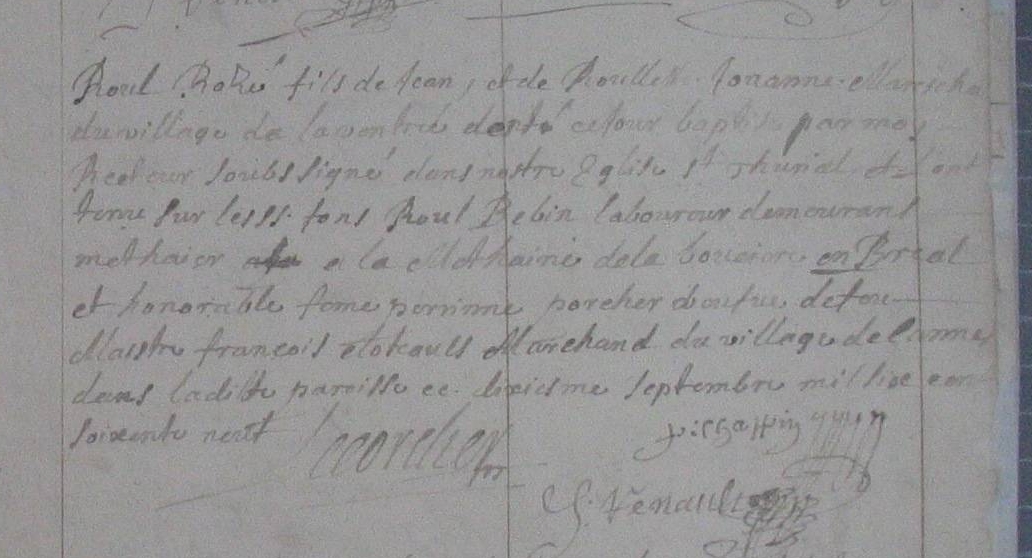 Roul Roké fils de Jean, et de Roullette Jouanne Mareschal
du village de la ventrée cejour baptisé par moy
Recteur soubssigné dans nostre Eglise st Thurial et l'ont
tenu sur les ss. fons Roul Rebin laboureur demeurant
methaier a la Methairie dela en Breal
et honorable feme perrinne porcher de feu
Maistre francois Marchand du village de
dans ladite paroisse ce dixiesme septembre mil six cen
soixente neuf
G. Venault